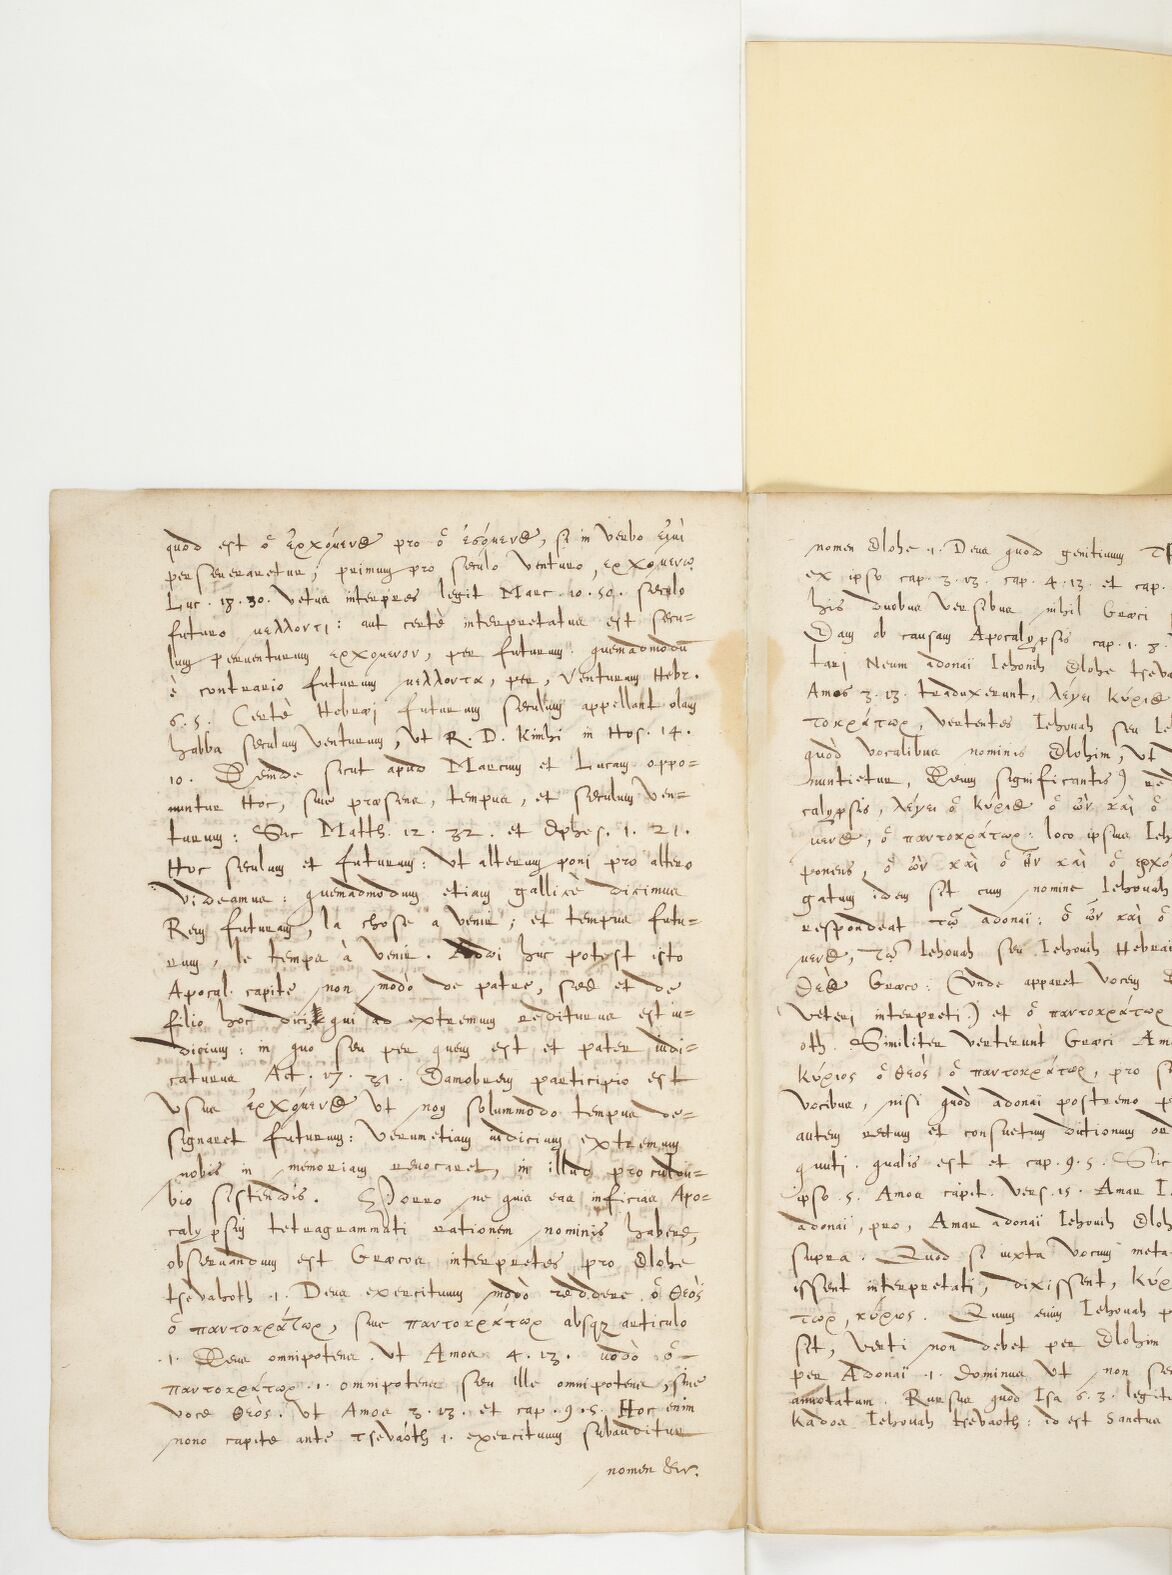 quod est ὁ ἐρχόμενος pro ὁ ἐσόμενος, si in verbo εἰμὶ
perseveraretur; primum pro sæculo venturo, ερχομενω
Luc. 18. 30. vetus interpres legit Marc. 10. 50. sæculo
futuro μελλοντι: aut certè interpretatus est sæcu=
lum perventurum ερχομενον, per futurum: quemadmodū
è contrario futurum μελλοντα, per, Venturum Hebr.
6. 5. Certè Hebræi futurum sæculum appellant olam
habba sæculum venturum, ut R. D. Kimhi in Hos. 14.
10. Deinde sicut apud Marcum et Lucam oppo=
nuntur Hoc, sive præsens, tempus, et sæculum ven=
turum: Sic Matth. 12. 32. et Ephes. 1. 21.
Hoc sæculum et futurum: Ut alterum poni pro altero
videamus: quemadmodum etiam gallicè dicimus
Rem futuram, la chose a venir; et tempus futu=
rum, le temps à venir. huc potest isto
Apocal. capite non modò de patre, sed et de
filio hoc dici, qui ad extremum rediturus est iu=
dicium: in quo seu per quem est et pater iudi=
caturus Act. 17. 31. Quamobrem participio est
usus ἐρχόμενος ut non solummodo tempus de=
signaret futurum: verumetiam iudicium extremum
nobis in memoriam revocaret, in illud procul du=
bio sistendis. Porro ne quis eas inficias Apo=
calypsim tetragrammati rationem nominis habere,
observandum est Græcos interpretes pro Elohe
tsevahoth .i. Deus exercituum modò reddere ὁ Θεὸς
ὁ παντοκράτωρ, sive παντοκράτωρ absq; articulo
.i. Deus omnipotens. ut Amos 4. 13. modò ὁ =
παντοκράτωρ .i. omnipotens seu ille omnipotens, sine
voce Θεὸς. ut Amos 3. 13. et cap. 9. 5. Hoc enim
nono capite ante tsevaoth .i. exercituum subauditur
nomen
nomen Elohe .i. Deus quod genitivum
ex ipso cap. 3. 13. cap. 4. 13. et cap.
his duobus versibus nihil Græci
Quam ob causam Apocalypsis cap. 1. 8.
tari Neum adonai Iehovih Elohe tseva
Amos 3. 13. traduxerunt, λέγει κύριος
τοκράτωρ, vertentes Iehovah seu Ie
quòd vocalibus nominis Elohim, ut
nuntietur, Deum significantis) re
calypsis, λέγει ὁ κύριος ὁ ὢν καὶ ὁ
μενος, ὁ παντοκράτωρ: loco ipsius Ieh
ponens, ὁ ὢν καὶ ὁ ἦν καὶ ὁ ερχό
gatum idem sit cum nomine Iehovah
respondeat τῷ adonai: ὁ ὢν καὶ ὁ
μενος, τῷ Iehovah seu Iehovih Hebrai
Θεὸς Græco: (unde apparet vocem
veteri interpreti) et ὁ παντοκράτωρ
oth. Similiter verterunt Græci Am
κύριος ὁ Θεὸς ὁ παντοκράτωρ, pro
vocibus, nisi quòd adonai postremo
autem rectum et consuetum dictionum or
qualis est et cap. 9. 5. Sic
ipso 5. Amos capit. vers. 15. Amar I
adonai, pro, Amar adonai Iehovih Eloh
supra. Quod si iuxta vocum
essent interpretati, dixissent, κύρ
τωρ, κύριος. Quum enim Iehovah
sit, verti non debet per Elohim
per Adonai .i. Dominus ut non
annotatum. Rursus quod Isa 6. 3. legit
Kados Iehovah tsevaoth: id est Sanctus